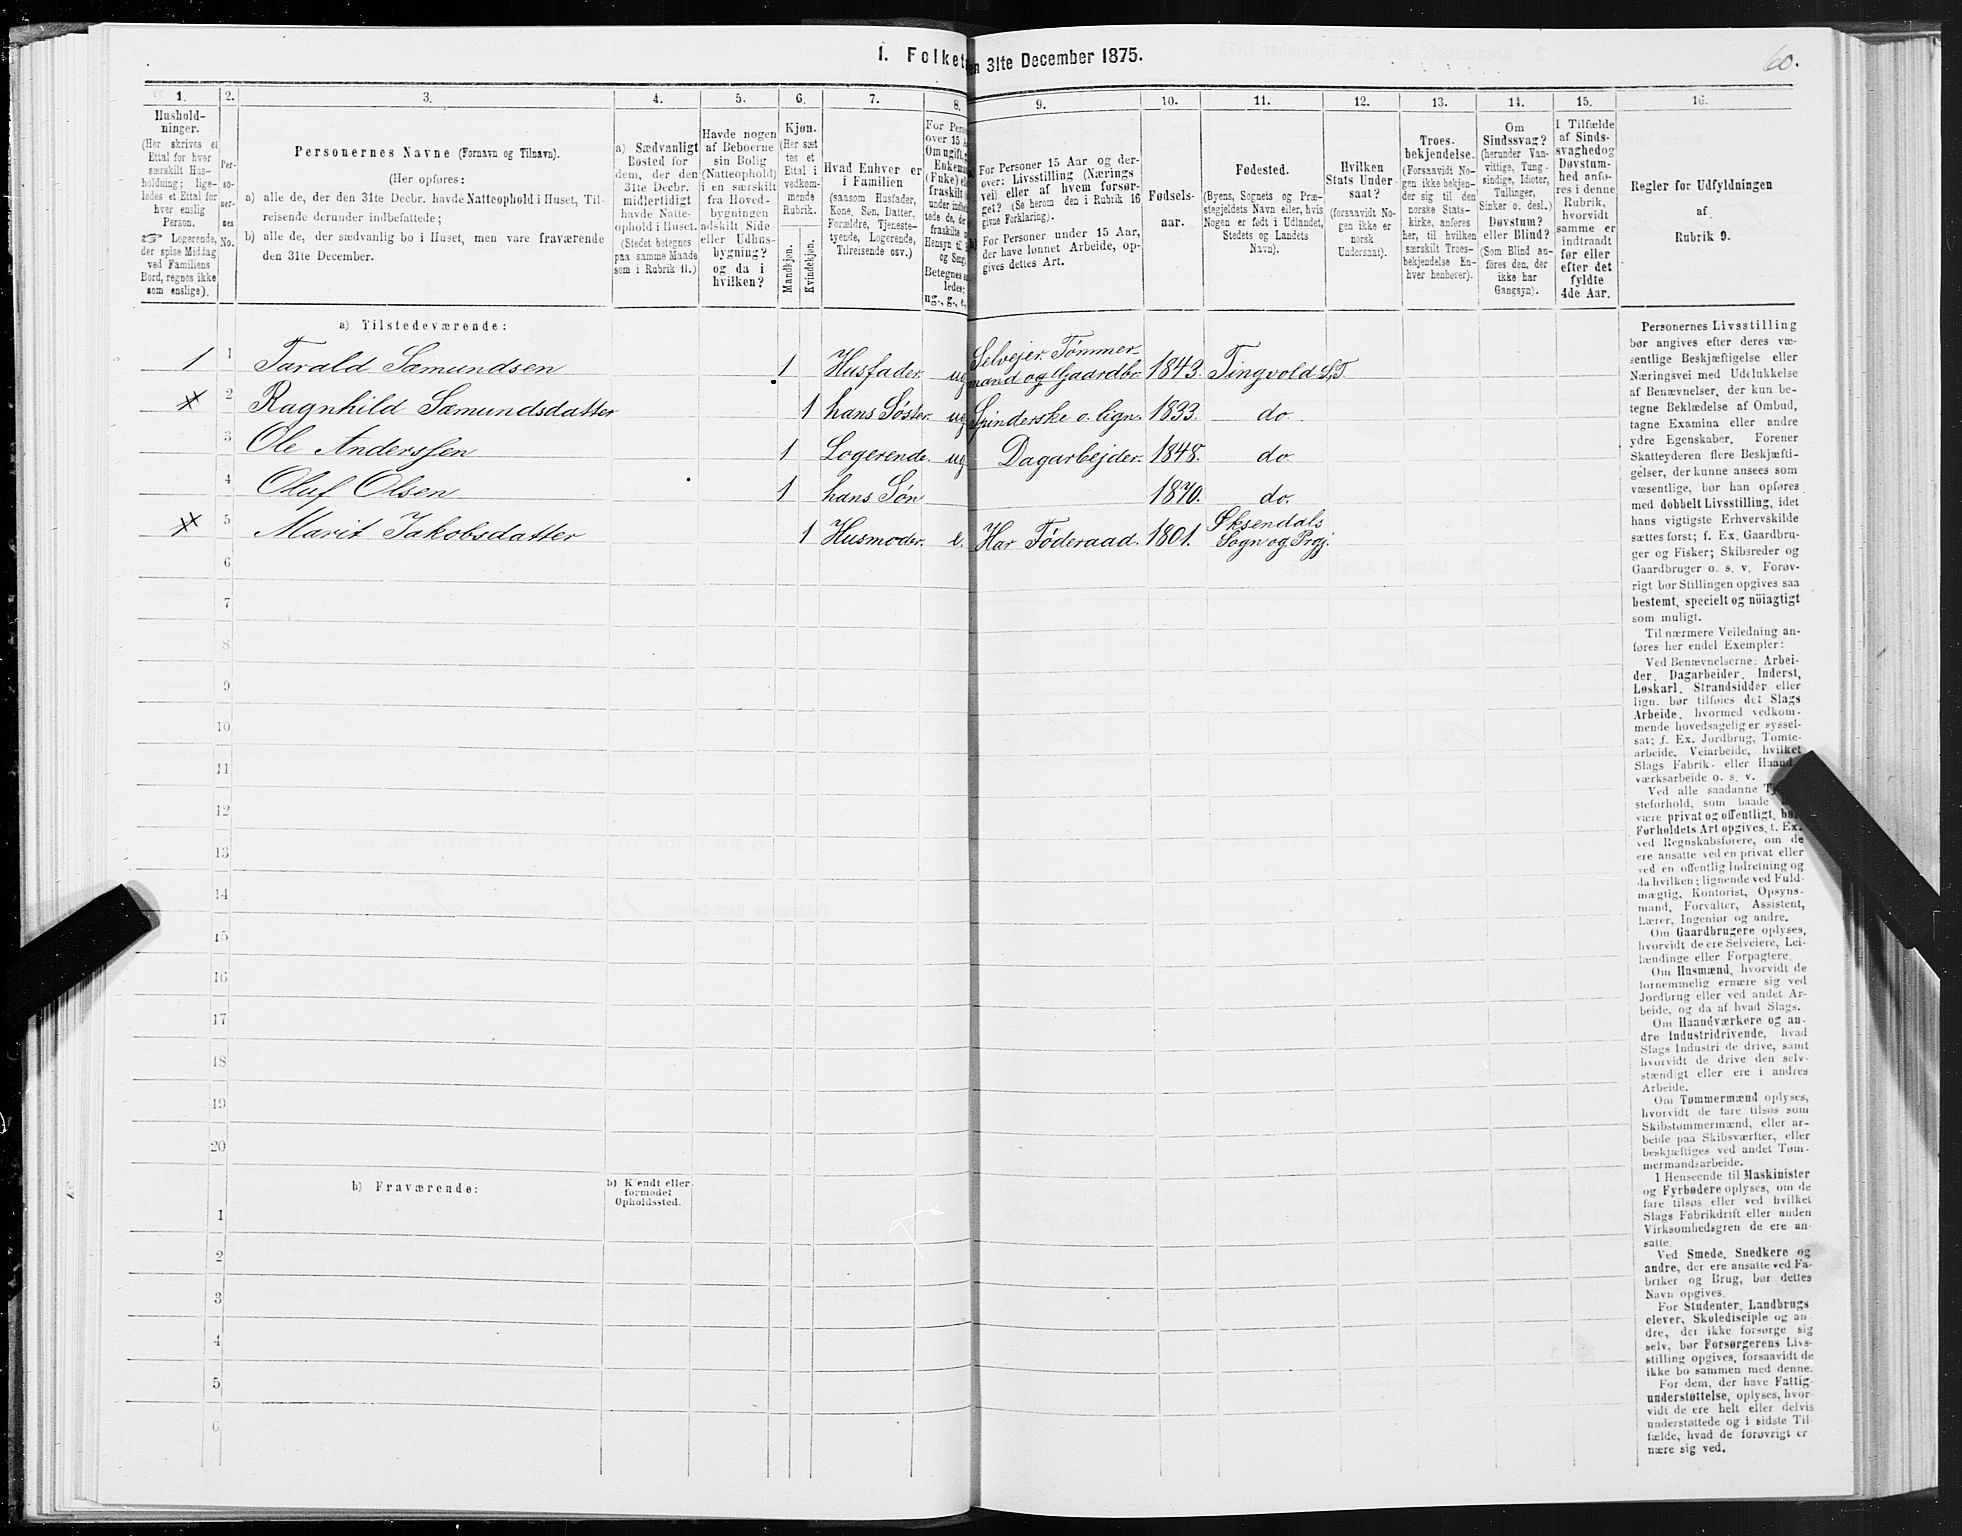 1. Folket
en 31te December 1875.
60.
1.
2.
3.
4.
5.
6.
7.
8.
9.
10.
11.
12.
13.
14.
15.
16.
Hushold-
ninger.
(Her skrives et
Ettal for hver
særskilt Hus-
holdning; lige-
ledes et Ettal for
hver enslig
Person.
☞ Logerende,
der spise Middag
ved Familiens
Bord, regnes ikke
som enslige).
Per-
so-
ner-
nes
No.
Personernes Navne (Fornavn og Tilnavn).
(Her opføres:
a) alle de, der den 31te Decbr. havde Natteophold i Huset, Til-
reisende derunder indbefattede;
b) alle de, der sædvanlig bo i Huset, men vare fraværende
den 31te December.
a) Sædvanligt
Bosted for
dem, der den
31te Decbr.
midlertidigt
havde Natte-
ophold i Huset.
(Stedet betegnes
paa samme Maade
som i Rubrik 11.)
Havde nogen
af Beboerne
sin Bolig
(Natteophold)
i en særskilt
fra Hoved-
bygningen
adskilt Side
eller Udhus-
bygning?
og da i
hvilken?
Kjøn.
(Her sæt
tes et
Ettal i
vedkom-
mende
Rubrik.
Mandkjøn.
Kvindekjøn.
Hvad Enhver er
i Familien
(saasom Husfader,
Kone, Søn, Datter,
Forældre, Tjeneste-
tyende, Logerende,
Tilreisende osv.)
For Pers
over 15 A
Om ugift, g
Enkema
(Enke) el
fraskilt
under indbe
tede de, de
fraskilte
Hensyn til
og Seng
Betegnes s
ledes:
ug., g., e.,
For Personer 15 Aar og der-
over: Livsstilling (Nærings
vei) eller af hvem forsør-
get? (Se herom den i Rubrik 16
givne Forklaring).
For Personer under 15 Aar,
der have lønnet Arbeide, op-
gives dettes Art.
Fødsels-
aar.
Fødested.
(Byens, Sognets og Præ-
stegjeldets Navn eller, hvis
Nogen er født i Udlandet,
Stedets og Landets
Navn).
Hvilken
Stats Under
saat?
(forsaavidt No-
gen ikke er
norsk
Undersaat).
Troes-
bekjendelse.
(Forsaavidt No-
gen ikke bekjen-
der sig til den
norske Stats-
kirke, anføres
her, til hvilken
særskilt Troes-
bekjendelse En-
hver henhører).
Om
Sindssvag?
(herunder Van-
vittige, Tung-
sindige, Idioter,
Tullinger,
Sinker o. desl.)
Døvstum?
eller Blind?
(Som Blind an-
føres den, der
ikke har
Gangsyn).
I Tilfælde
af Sinds-
svaghed og
Døvstum-
hed anfø-
res i denne
Rubrik,
hvorvidt
samme er
indtraadt
før eller
efter det
fyldte
4de Aar.
Regler for Udfyldningen
af
Rubrik 9.
a) Tilstedeværende:
1 1 Tarald Samundsen 1 Husfader ug Selvejer Tømmer-
mand og Gaardbr. 1843. Tingvold S,T.
2 Ragnhild Samundsdatter 1 hans Søster. ug Spinderske o. lign. 1833. do.
3 Ole Anderssen 1 Logerende. ug Dagarbejder. 1848. do.
4 Oluf Olsen 1 hans Søn 1870. do.
5 Marit Jakobsdatter 1 Husmoder. e. Har Føderaad. 1801. Øksendals
Sogn og Prgj.
6
7
8
9
10
11
12
13
14
15
16
17
18
19
20
b) Fraværende:
b) Kjendt eller
formodet
Opholdssted.
1
2
3
4
5
6
Personernes Livsstilling
bør angives efter deres væ-
sentlige Beskjæftigelse eller
Næringsvei med Udelukkelse
af Benævnelser, der kun be-
tegne Beklædelse af Ombud,
tagne Examina eller andre
ydre Egenskaber. Forener
Skatteyderen flere Beskjæfti-
gelser, der kunne ansees som
væsentlige, bør han opføres
med dobbelt Livsstilling, idet
hans vigtigste Erhvervskilde
sættes først; f. Ex. Gaardbru-
ger og Fisker; Skibsreder og
Gaardbruger o. s. v. Forøv-
rigt bør Stillingen opgives saa
bestemt, specielt og nöiagtigt
som muligt.
Til nærmere Veiledning an-
føres her endel Exempler:
Ved Benævnelserne: Arbei-
der, Dagarbeider, Inderst,
Løskarl, Strandsidder eller
lign. bør tilføies det Slags
Arbeide, hvormed vedkom-
mende hovedsagelig er syssel-
sat; f. Ex. Jordbrug, Tømte-
arbeide, Veiarbeide, hvilket
Slags Fabrik- eller Haand
værksarbeide o. s. v.
Ved alle saadanne Tj
steforhold, som baade
være privat og offentligt, bør
Forholdets Art opgives, t. Ex.
ved Regnskabsførere, om de
ere ansatte ved en privat eller
ved en offentlig Indretning og
da hvilken; lignende ved Fuld-
mægtig, Kontorist, Opsyns-
mand, Forvalter, Assistent,
Lærer, Ingeniør og andre.
Om Gaardbrugere oplyses,
hvorvidt de ere Selveiere, Lei-
lændinge eller Forpagtere.
Om Husmænd, hvorvidt de
fornemmelig ernære sig ved
Jordbrug eller ved andet Ar-
beide, og da af hvad Slags.
Om Haandværkere og an-
dre Industridrivende, hvad
Slags Industri de drive, samt
hvorvidt de drive den selv-
stændigt eller ere i andres
Arbeide.
Om Tømmermænd oplyses,
hvorvidt de fare tilsøs som
Skibstømmermænd, eller ar-
beide paa Skibsværfter, eller
beskjæftiges ved andet Tøm-
mermandsarbeide.
I Henseende til Maskinister
og Fyrbødere oplyses, om de
fare tilsøs eller ved hvilket
Slags Fabrikdrift eller anden
Virksomhedsgren de ere an-
satte.
Ved Smede, Snedkere og
andre, der ere ansatte ved Fa-
briker og Brug, bør dettes
Navn opgives.
For Studenter, Landbrugs
elever, Skoledisciple og an-
dre, der ikke forsørge sig
selv, bør Forsørgerens Livs-
stilling opgives, forsaavidt de
ikke bo sammen med denne.
For dem, der have Fattig-
understøttelse, oplyses, hvor-
vidt de ere helt eller delvis
understøttede og i sidste Til-
fælde, hvad de forøvrigt er
nære sig ved.